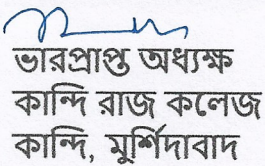 ভারপ্রাপ্ত অধ্যক্ষ
কান্দি রাজ কলেজ
কান্দি, মুর্শিদাবাদ